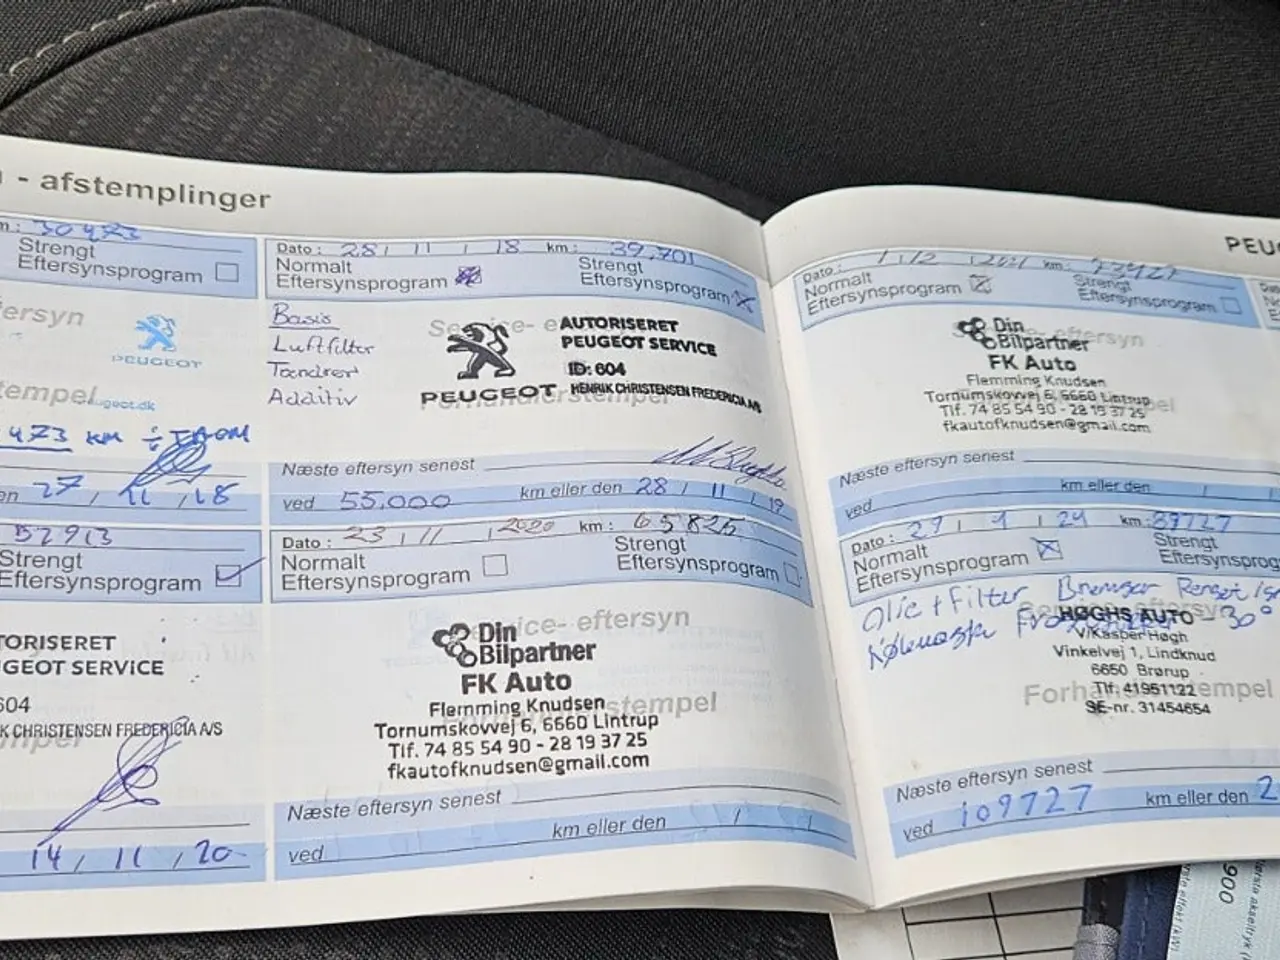 - afstemplinger
30473
Strengt
Eftersynsprogram
PEUGEOT
473 km
27 / 11 / 18
52913
Strengt
Eftersynsprogram
PEUGEOT SERVICE
604
CHRISTENSEN FREDERICIA A/S
14 / 11 / 20
Dato: 28 / 11 / 18 km: 39.701
Normalt
Eftersynsprogram
Strengt
Eftersynsprogram
Basis
Luftfilter
Tændrør
Additiv
AUTORISERET
PEUGEOT SERVICE
ID: 604
PEUGEOT HENRIK CHRISTENSEN FREDERICIA A/S
Næste eftersyn senest
ved 55.000 km eller den 28 / 11 / 19
Dato: 23 / 11 / 2020 km: 65825
Normalt
Eftersynsprogram
Strengt
Eftersynsprogram
Service- eftersyn
Din
Bilpartner
FK Auto
Flemming Knudsen
Tornumskovvej 6, 6660 Lintrup
Tlf. 74 85 54 90 - 28 19 37 25
fkautofknudsen@gmail.com
Næste eftersyn senest
ved km eller den / /
Dato: km:
Normalt
Eftersynsprogram
Strengt
Eftersynsprogram
Din
Bilpartner
FK Auto
Flemming Knudsen
Tornumskovvej 6, 6660 Lintrup
Tlf. 74 85 54 90 - 28 19 37 25
fkautofknudsen@gmail.com
Næste eftersyn senest
ved km eller den / /
Dato: 29 / 1 / 24 km: 89727
Normalt
Eftersynsprogram
Strengt
Eftersynsprogram
Olie + Filter Bremser Renset
Kølemaske - 30°
HØGHS AUTO
V/Kasper Høgh
Vinkelvej 1, Lindknud
6650 Brørup
Tlf: 41951122
SE-nr. 31454654
Næste eftersyn senest
ved 109727 km eller den 2
900